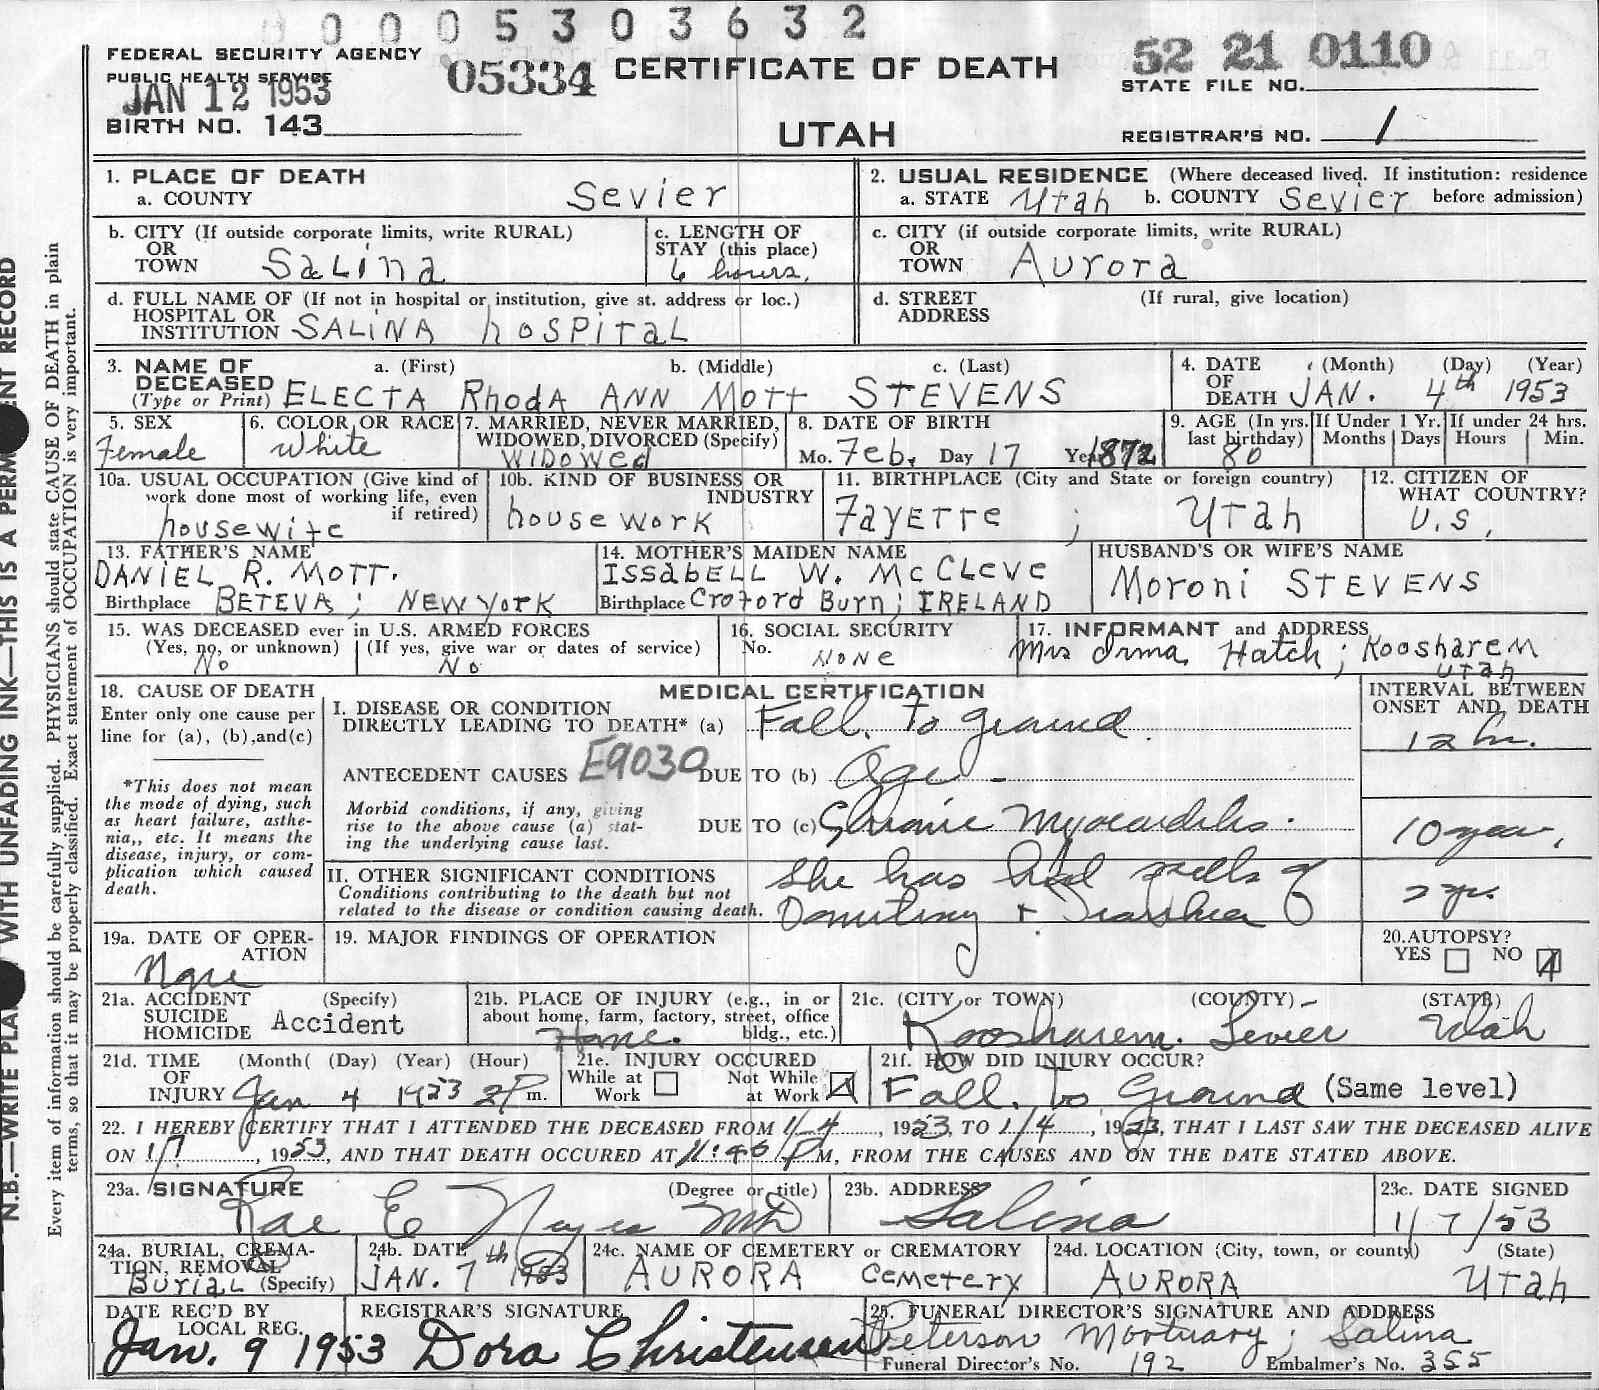 0 0 0 5 3 0 3 6 3 2
FEDERAL SECURITY AGENCY
PUBLIC HEALTH SERVICE
JAN 12 1953
BIRTH NO. 143
05334 CERTIFICATE OF DEATH
UTAH
52 21 0110
STATE FILE NO.
REGISTRAR'S NO. 1
N.B.—WRITE PLA WITH UNFADING INK—THIS IS A PERM ENT RECORD
Every item of information should be carefully supplied. PHYSICIANS should state CAUSE OF DEATH in plain
terms, so that it may be properly classified. Exact statement of OCCUPATION is very important.
1. PLACE OF DEATH
a. COUNTY Sevier
2. USUAL RESIDENCE (Where deceased lived. If institution: residence
a. STATE Utah b. COUNTY Sevier before admission)
b. CITY (If outside corporate limits, write RURAL)
OR
TOWN Salina
c. LENGTH OF
STAY (this place)
6 hours.
c. CITY (if outside corporate limits, write RURAL)
OR
TOWN Aurora
d. FULL NAME OF (If not in hospital or institution, give st. address or loc.)
HOSPITAL OR
INSTITUTION SALINA hOSPITAL
d. STREET (If rural, give location)
ADDRESS
3. NAME OF a. (First) b. (Middle) c. (Last)
DECEASED
(Type or Print) ELECTA RhodA ANN MOTT STEVENS
4. DATE (Month) (Day) (Year)
OF
DEATH JAN. 4th 1953
5. SEX
Female
6. COLOR OR RACE
White
7. MARRIED, NEVER MARRIED,
WIDOWED, DIVORCED (Specify)
Widowed
8. DATE OF BIRTH
Mo. Feb. Day 17 Year 1872
9. AGE (In yrs.
last birthday)
80
If Under 1 Yr.
Months Days
If under 24 hrs.
Hours Min.
10a. USUAL OCCUPATION (Give kind of
work done most of working life, even
if retired)
housewife
10b. KIND OF BUSINESS OR
INDUSTRY
housework
11. BIRTHPLACE (City and State or foreign country)
FayETTe ; Utah
12. CITIZEN OF
WHAT COUNTRY?
U.S.
13. FATHER'S NAME
DANIEL R. MOTT.
Birthplace BETEVA; NEW YORK
14. MOTHER'S MAIDEN NAME
ISSabELL W. McCLeve
Birthplace Croford Burn; IRELAND
HUSBAND'S OR WIFE'S NAME
Moroni STEVENS
15. WAS DECEASED ever in U.S. ARMED FORCES
(Yes, no, or unknown) (If yes, give war or dates of service)
No No
16. SOCIAL SECURITY
No.
None
17. INFORMANT and ADDRESS
Mrs Irma Hatch; Koosharem
Utah
18. CAUSE OF DEATH
Enter only one cause per
line for (a), (b), and (c)
*This does not mean
the mode of dying, such
as heart failure, asthe-
nia,, etc. It means the
disease, injury, or com-
plication which caused
death.
MEDICAL CERTIFICATION
I. DISEASE OR CONDITION
DIRECTLY LEADING TO DEATH* (a) Fall. to ground.
ANTECEDENT CAUSES E9030 DUE TO (b) Age
Morbid conditions, if any, giving
rise to the above cause (a) stat-
ing the underlying cause last.
DUE TO (c) Chronic Myocarditis.
II. OTHER SIGNIFICANT CONDITIONS
Conditions contributing to the death but not
related to the disease or condition causing death.
She has had spells of
Vomiting + Diarrhea
INTERVAL BETWEEN
ONSET AND DEATH
12 hr.
10 year,
2 yr.
19a. DATE OF OPER-
ATION
None
19. MAJOR FINDINGS OF OPERATION
20. AUTOPSY?
YES NO
21a. ACCIDENT (Specify)
SUICIDE
HOMICIDE Accident
21b. PLACE OF INJURY (e.g., in or
about home, farm, factory, street, office
bldg., etc.)
Home.
21c. (CITY or TOWN) (COUNTY) (STATE)
Koosharem. Sevier Utah
21d. TIME (Month( (Day) (Year) (Hour)
OF
INJURY Jan 4 1953 m.
21e. INJURY OCCURED
While at Not While
Work at Work
21f. HOW DID INJURY OCCUR?
Fall. to Ground (Same level)
22. I HEREBY CERTIFY THAT I ATTENDED THE DECEASED FROM 1-4, 1953, TO 1/4, 1953, THAT I LAST SAW THE DECEASED ALIVE
ON, 1953, AND THAT DEATH OCCURED AT P M, FROM THE CAUSES AND ON THE DATE STATED ABOVE.
23a. SIGNATURE (Degree or title)
Rae E Noyes MD
23b. ADDRESS
Salina
23c. DATE SIGNED
1/7/53
24a. BURIAL, CREMA-
TION, REMOVAL
Burial (Specify)
24b. DATE
JAN. 7th 1953
24c. NAME OF CEMETERY or CREMATORY
AURORA Cemetery
24d. LOCATION (City, town, or county) (State)
AURORA Utah
DATE REC'D BY
LOCAL REG.
Jan. 9 1953
REGISTRAR'S SIGNATURE
Dora Christensen
25. FUNERAL DIRECTOR'S SIGNATURE AND ADDRESS
Peterson Mortuary; Salina
Funeral Director's No. 192 Embalmer's No. 355